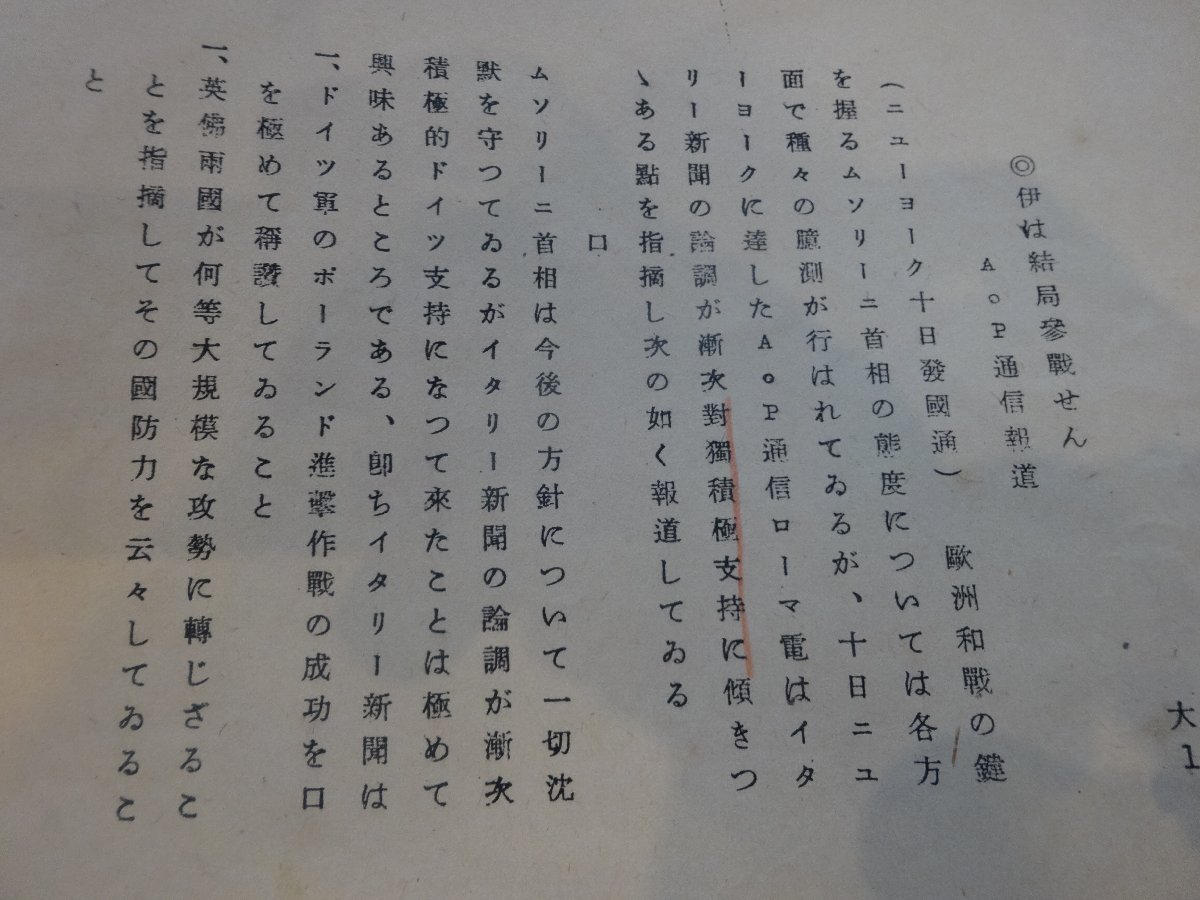 大
1
◎伊は結局參戰せん
A。P通信報道
(ニューヨーク十日發國通) 歐洲和戰の鍵
を握るムソリーニ首相の態度については各方
面で種々の臆測が行はれてゐるが、十日ニュ
ーヨークに達したA。P通信ローマ電はイタ
リー新聞の論調が漸次對獨積極支持に傾きつ
ゝある點を指摘し次の如く報道してゐる
口
ムソリーニ首相は今後の方針について一切沈
默を守つてゐるがイタリー新聞の論調が漸次
積極的ドイツ支持になつて來たことは極めて
興味あるところである、卽ちイタリー新聞は
一、ドイツ軍のポーランド進擊作戰の成功を口
を極めて稱讚してゐること
一、英佛兩國が何等大規模な攻勢に轉じざるこ
とを指摘してその國防力を云々してゐるこ
と